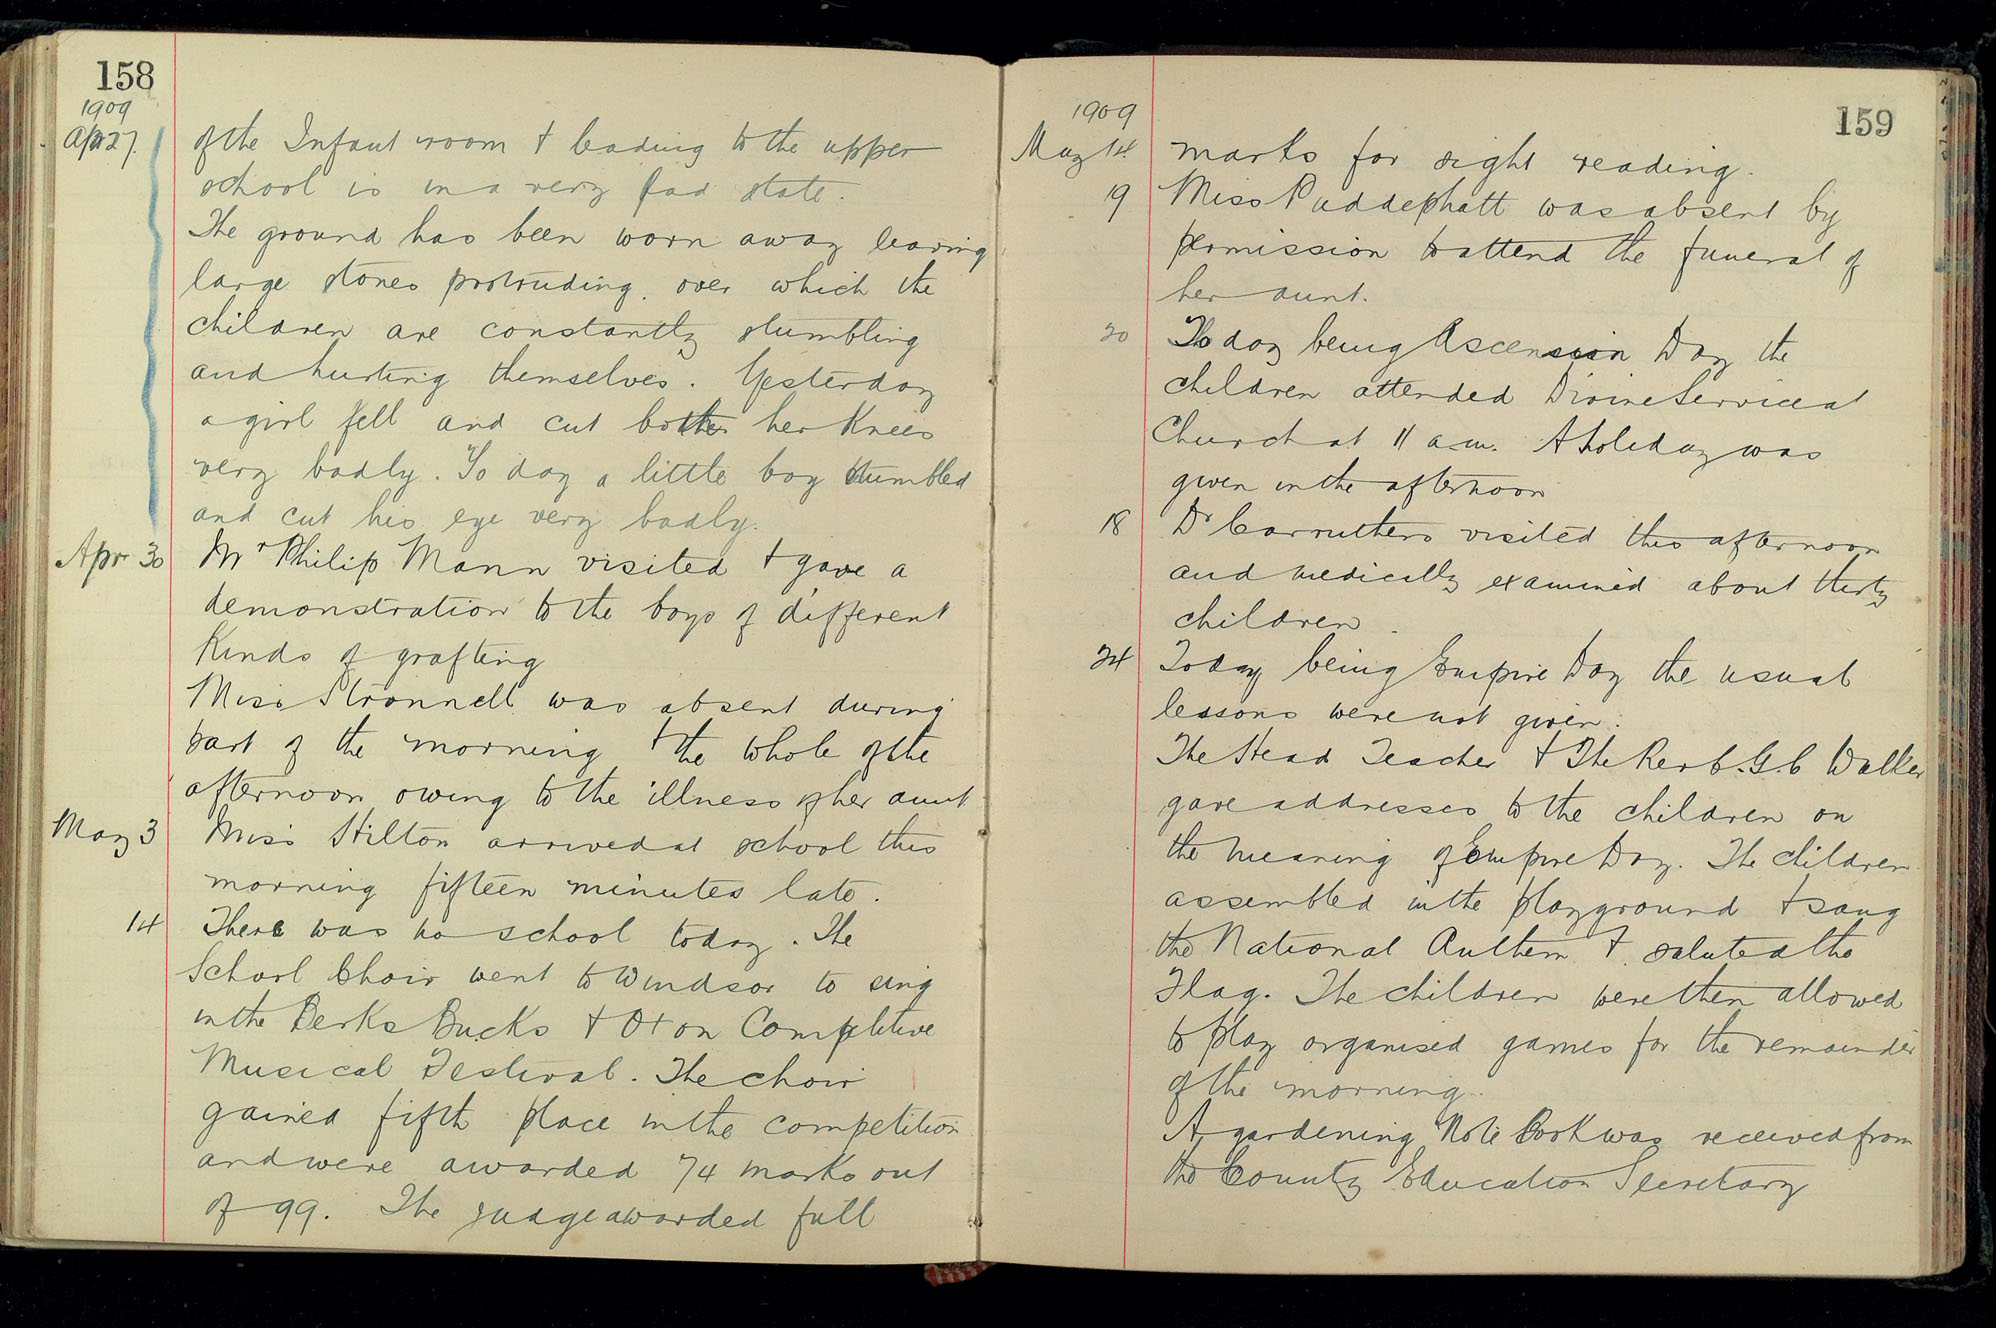 158
1909
Apr 27. of the Infant room & leading to the upper
school is in a very bad state.
The ground has been worn away leaving
large stones protruding, over which the
children are constantly stumbling
and hurting themselves. Yesterday
a girl fell and cut both her knees
very badly. To day a little boy stumbled
and cut his eye very badly.
Apr 30 Mr Philip Mann visited & gave a
demonstration to the boys of different
kinds of grafting
Miss Stronnell was absent during
part of the morning & the whole of the
afternoon owing to the illness of her aunt
May 3 Miss Hilton arrived at school this
morning fifteen minutes late.
14 There was no school today. The
School Choir went to Windsor to sing
in the Berks Bucks & Oxon Competitive
Musical Festival. The choir
gained fifth place in the competition
and were awarded 74 marks out
of 99. The judge awarded full
159
1909
May 14. marks for sight reading.
19 Miss Puddephatt was absent by
permission to attend the funeral of
her aunt.
20 To day being Ascension Day the
children attended Divine Service at
Church at 11 a.m. A holiday was
given in the afternoon
18 Dr Carruthers visited this afternoon
and medically examined about thirty
children.
24 Today being Empire Day the usual
lessons were not given.
The Head Teacher & The Rev C. G. C Walker
gave addresses to the children on
the meaning of Empire Day. The children
assembled in the playground & sang
the National Anthem & saluted the
Flag. The children were then allowed
to play organised games for the remainder
of the morning.
A gardening Note Book was received from
the County Education Secretary